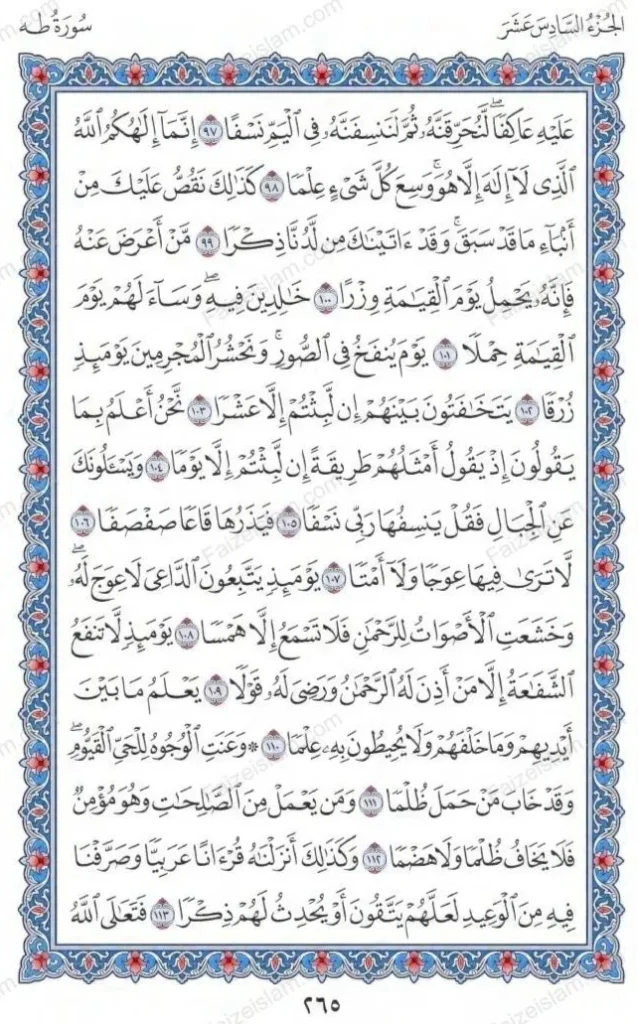 الجُزْءُ السَّادِسَ عَشَرَ
سُورَةُ طٰه
عَلَيْهِ عَاكِفًاۖ لَّنُحَرِّقَنَّهُۥ ثُمَّ لَنَنسِفَنَّهُۥ فِى ٱلْيَمِّ نَسْفًا ٩٧ إِنَّمَآ إِلَٰهُكُمُ ٱللَّهُ
ٱلَّذِى لَآ إِلَٰهَ إِلَّا هُوَۚ وَسِعَ كُلَّ شَىْءٍ عِلْمًا ٩٨ كَذَٰلِكَ نَقُصُّ عَلَيْكَ مِنْ
أَنۢبَآءِ مَا قَدْ سَبَقَۚ وَقَدْ ءَاتَيْنَٰكَ مِن لَّدُنَّا ذِكْرًا ٩٩ مَّنْ أَعْرَضَ عَنْهُ
فَإِنَّهُۥ يَحْمِلُ يَوْمَ ٱلْقِيَٰمَةِ وِزْرًا ١٠٠ خَٰلِدِينَ فِيهِۖ وَسَآءَ لَهُمْ يَوْمَ
ٱلْقِيَٰمَةِ حِمْلًا ١٠١ يَوْمَ يُنفَخُ فِى ٱلصُّورِۚ وَنَحْشُرُ ٱلْمُجْرِمِينَ يَوْمَئِذٍ
زُرْقًا ١٠٢ يَتَخَٰفَتُونَ بَيْنَهُمْ إِن لَّبِثْتُمْ إِلَّا عَشْرًا ١٠٣ نَّحْنُ أَعْلَمُ بِمَا
يَقُولُونَ إِذْ يَقُولُ أَمْثَلُهُمْ طَرِيقَةً إِن لَّبِثْتُمْ إِلَّا يَوْمًا ١٠٤ وَيَسْـَٔلُونَكَ
عَنِ ٱلْجِبَالِ فَقُلْ يَنسِفُهَا رَبِّى نَسْفًا ١٠٥ فَيَذَرُهَا قَاعًا صَفْصَفًا ١٠٦
لَّا تَرَىٰ فِيهَا عِوَجًا وَلَآ أَمْتًا ١٠٧ يَوْمَئِذٍ يَتَّبِعُونَ ٱلدَّاعِىَ لَا عِوَجَ لَهُۥۖ
وَخَشَعَتِ ٱلْأَصْوَاتُ لِلرَّحْمَٰنِ فَلَا تَسْمَعُ إِلَّا هَمْسًا ١٠٨ يَوْمَئِذٍ لَّا تَنفَعُ
ٱلشَّفَٰعَةُ إِلَّا مَنْ أَذِنَ لَهُ ٱلرَّحْمَٰنُ وَرَضِىَ لَهُۥ قَوْلًا ١٠٩ يَعْلَمُ مَا بَيْنَ
أَيْدِيهِمْ وَمَا خَلْفَهُمْ وَلَا يُحِيطُونَ بِهِۦ عِلْمًا ١١٠ ۞ وَعَنَتِ ٱلْوُجُوهُ لِلْحَىِّ ٱلْقَيُّومِۖ
وَقَدْ خَابَ مَنْ حَمَلَ ظُلْمًا ١١١ وَمَن يَعْمَلْ مِنَ ٱلصَّٰلِحَٰتِ وَهُوَ مُؤْمِنٌ
فَلَا يَخَافُ ظُلْمًا وَلَا هَضْمًا ١١٢ وَكَذَٰلِكَ أَنزَلْنَٰهُ قُرْءَانًا عَرَبِيًّا وَصَرَّفْنَا
فِيهِ مِنَ ٱلْوَعِيدِ لَعَلَّهُمْ يَتَّقُونَ أَوْ يُحْدِثُ لَهُمْ ذِكْرًا ١١٣ فَتَعَٰلَى ٱللَّهُ
٢٦٥
Faizeislam.com